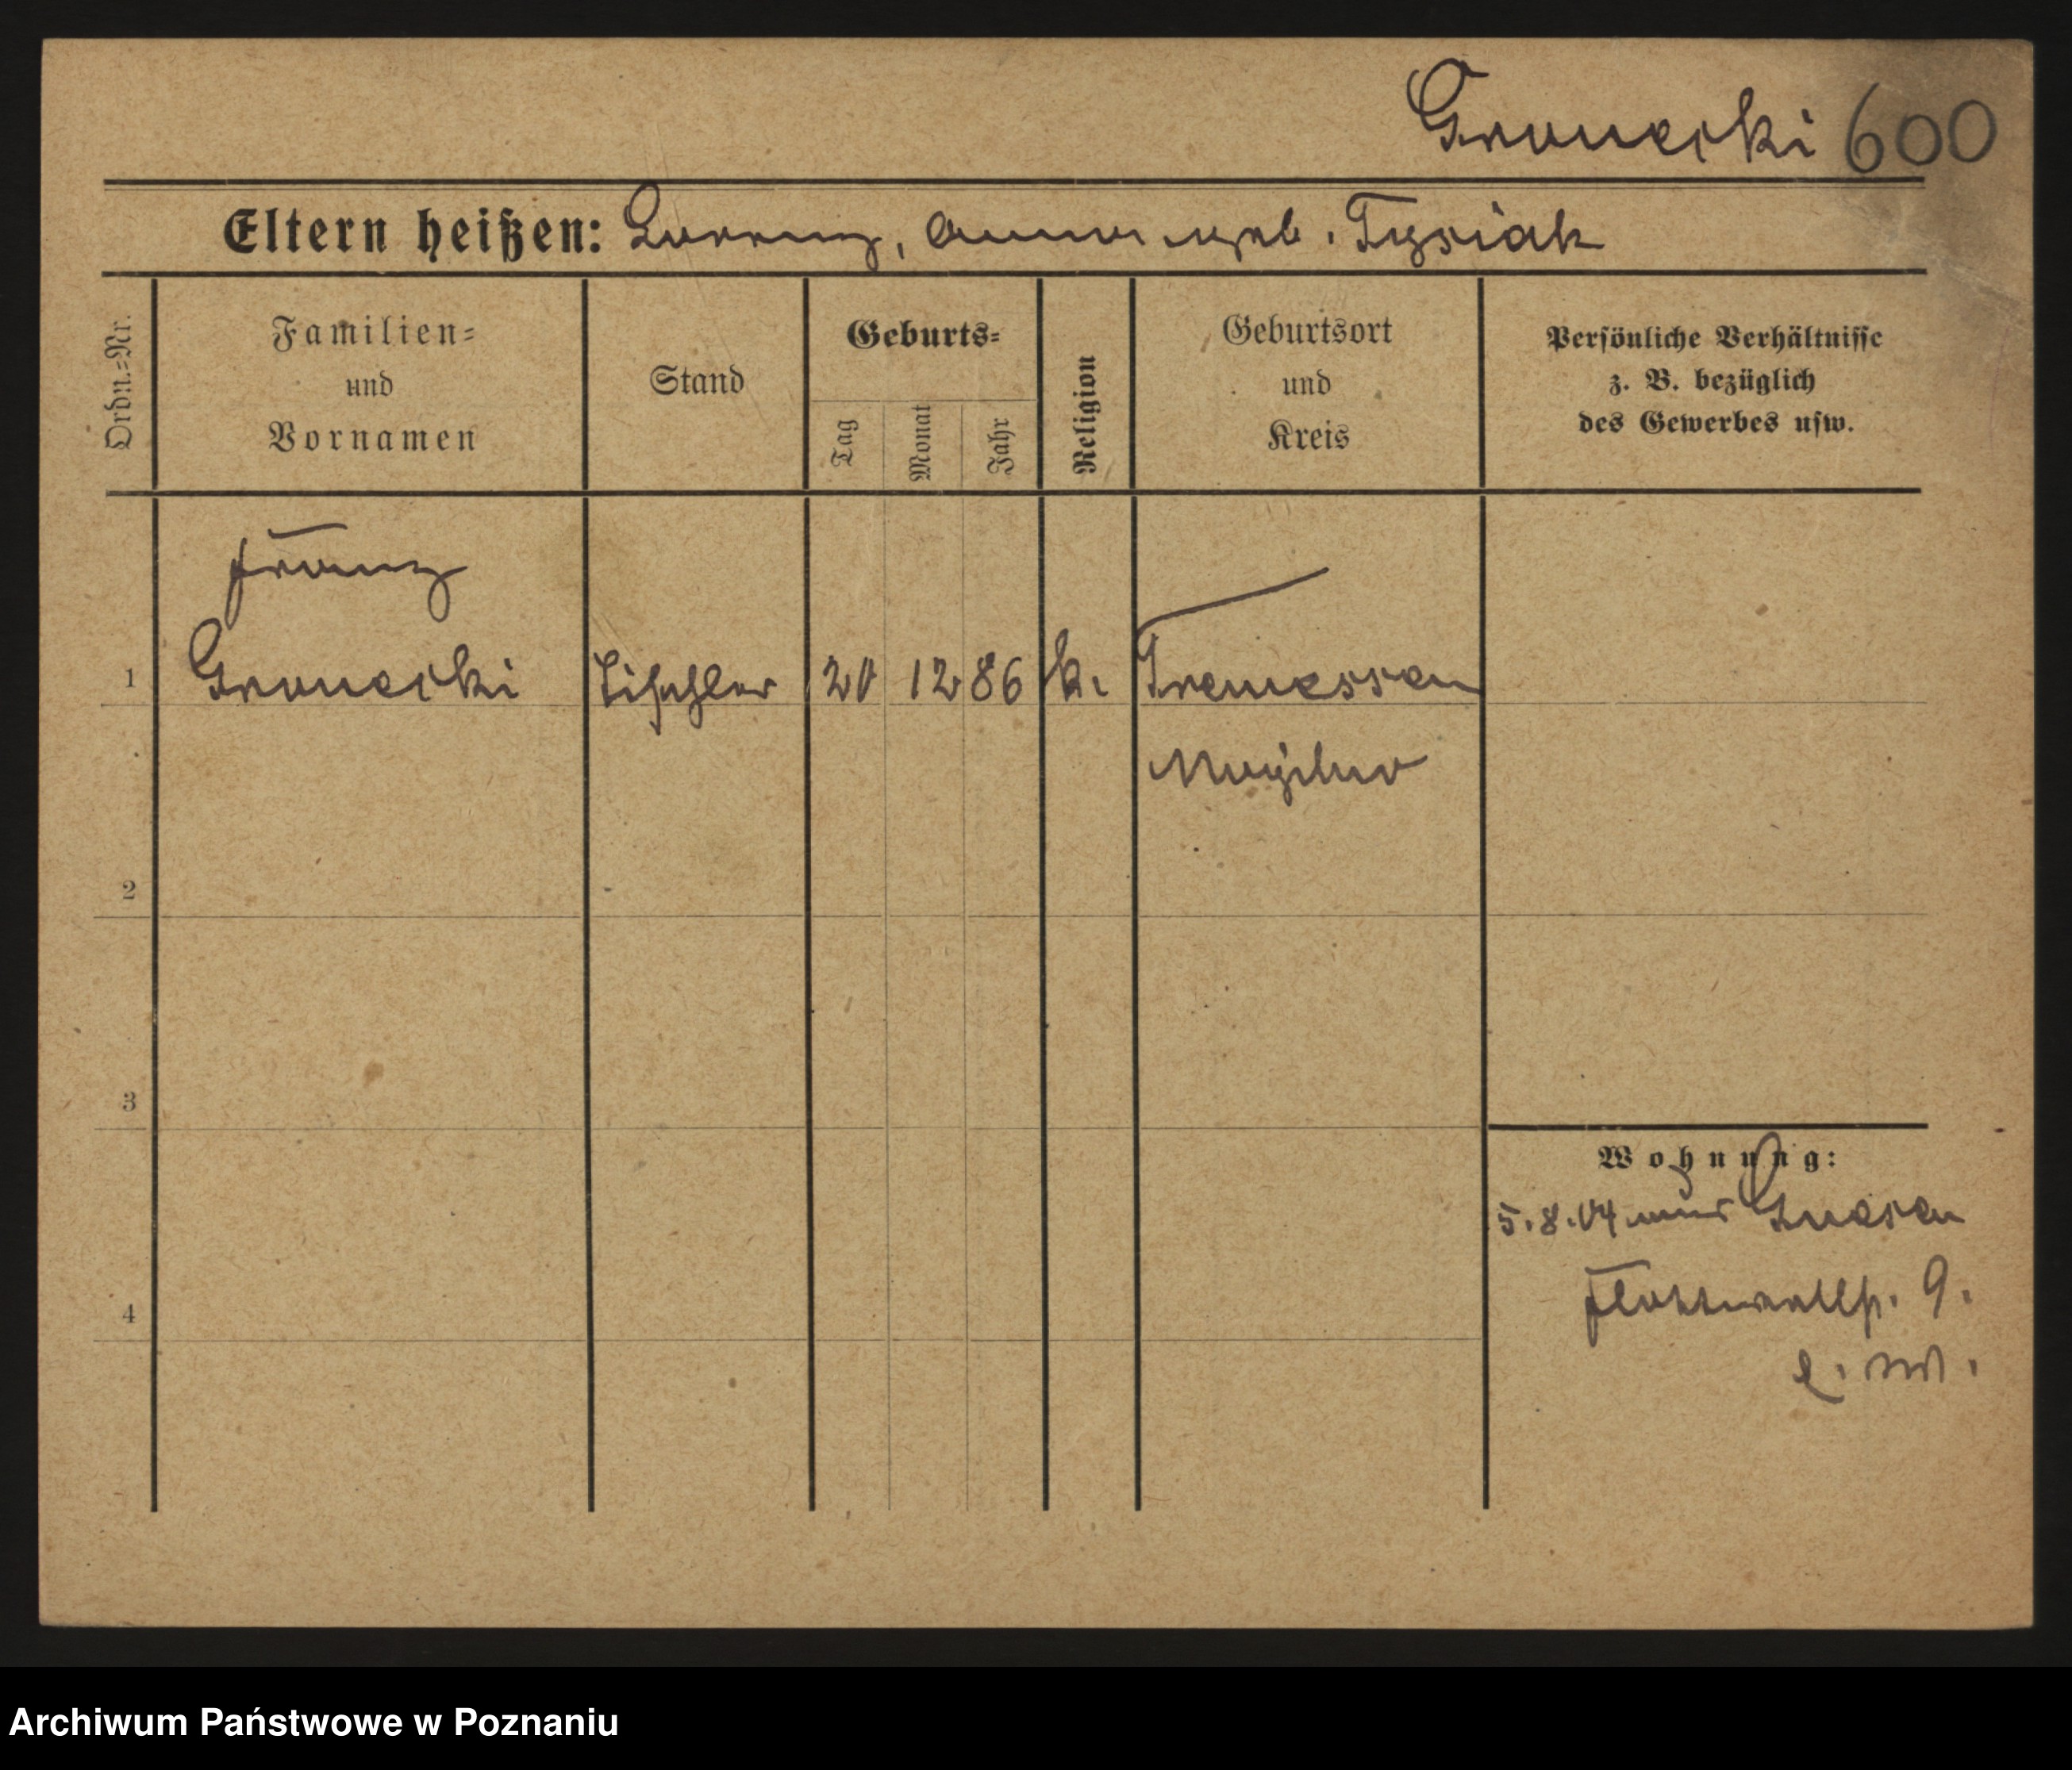 Gronecki 600
Eltern heißen: Lorenz, Anna geb. Tysiak
Ordn.=Nr.
Familien=
und
Vornamen
Stand
Geburts=
Tag
Monat
Jahr
Religion
Geburtsort
und
Kreis
Persönliche Verhältnisse
z. B. bezüglich
des Gewerbes usw.
Franz
1 Gronecki Tischler 20 12 86 k. Tremessen
Mogilno
2
3
4
Wohnung:
5.8.04 aus Gnesen
Flottwellstr. 9.
Archiwum Państwowe w Poznaniu